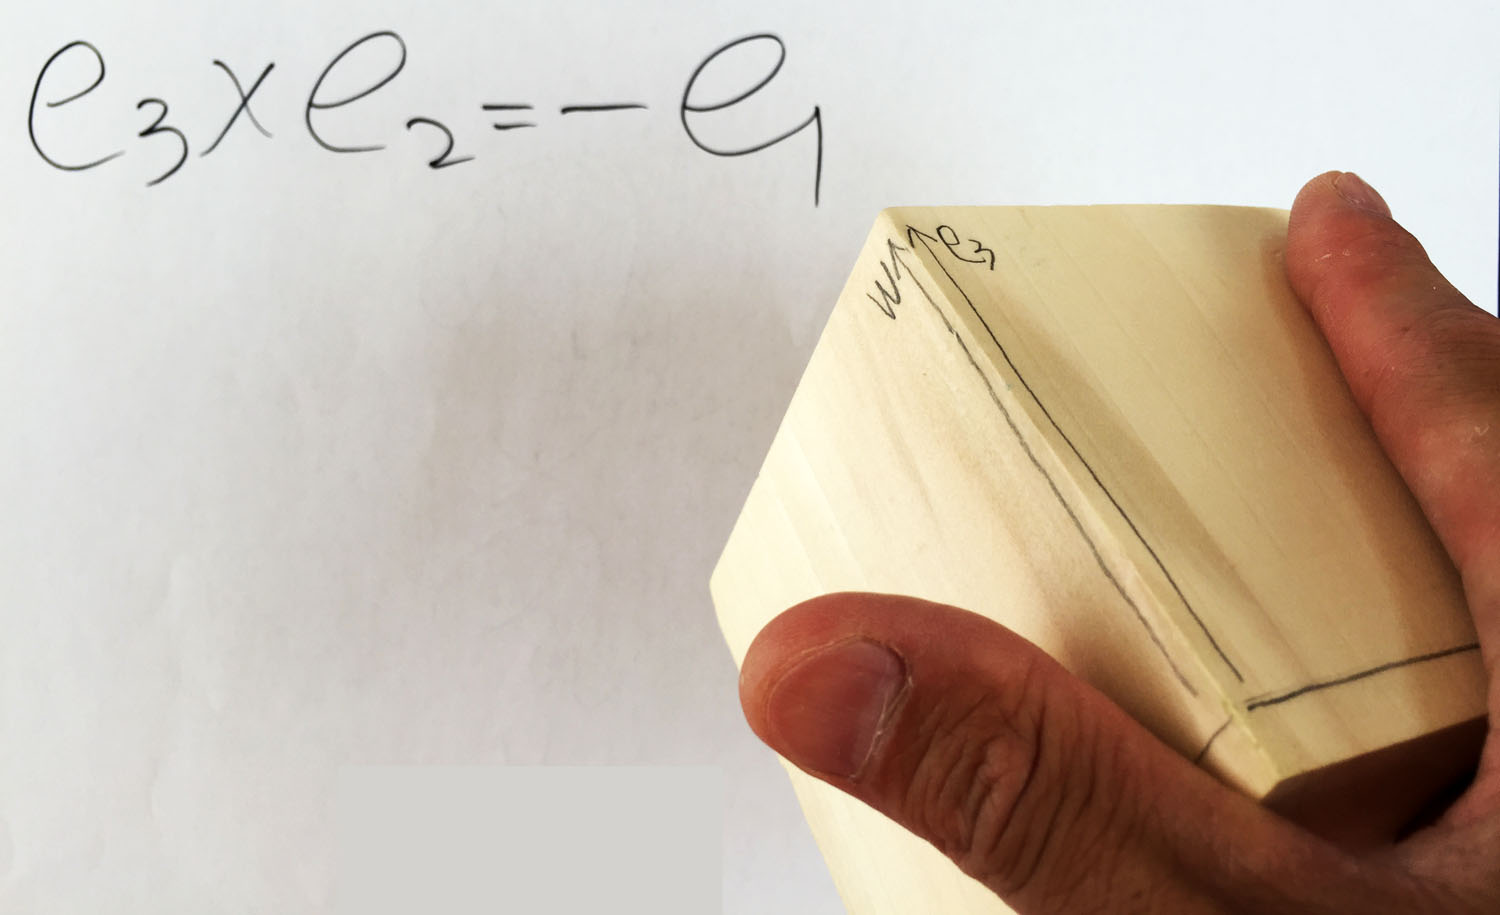 e₃×e₂=-e₁
e₃
w